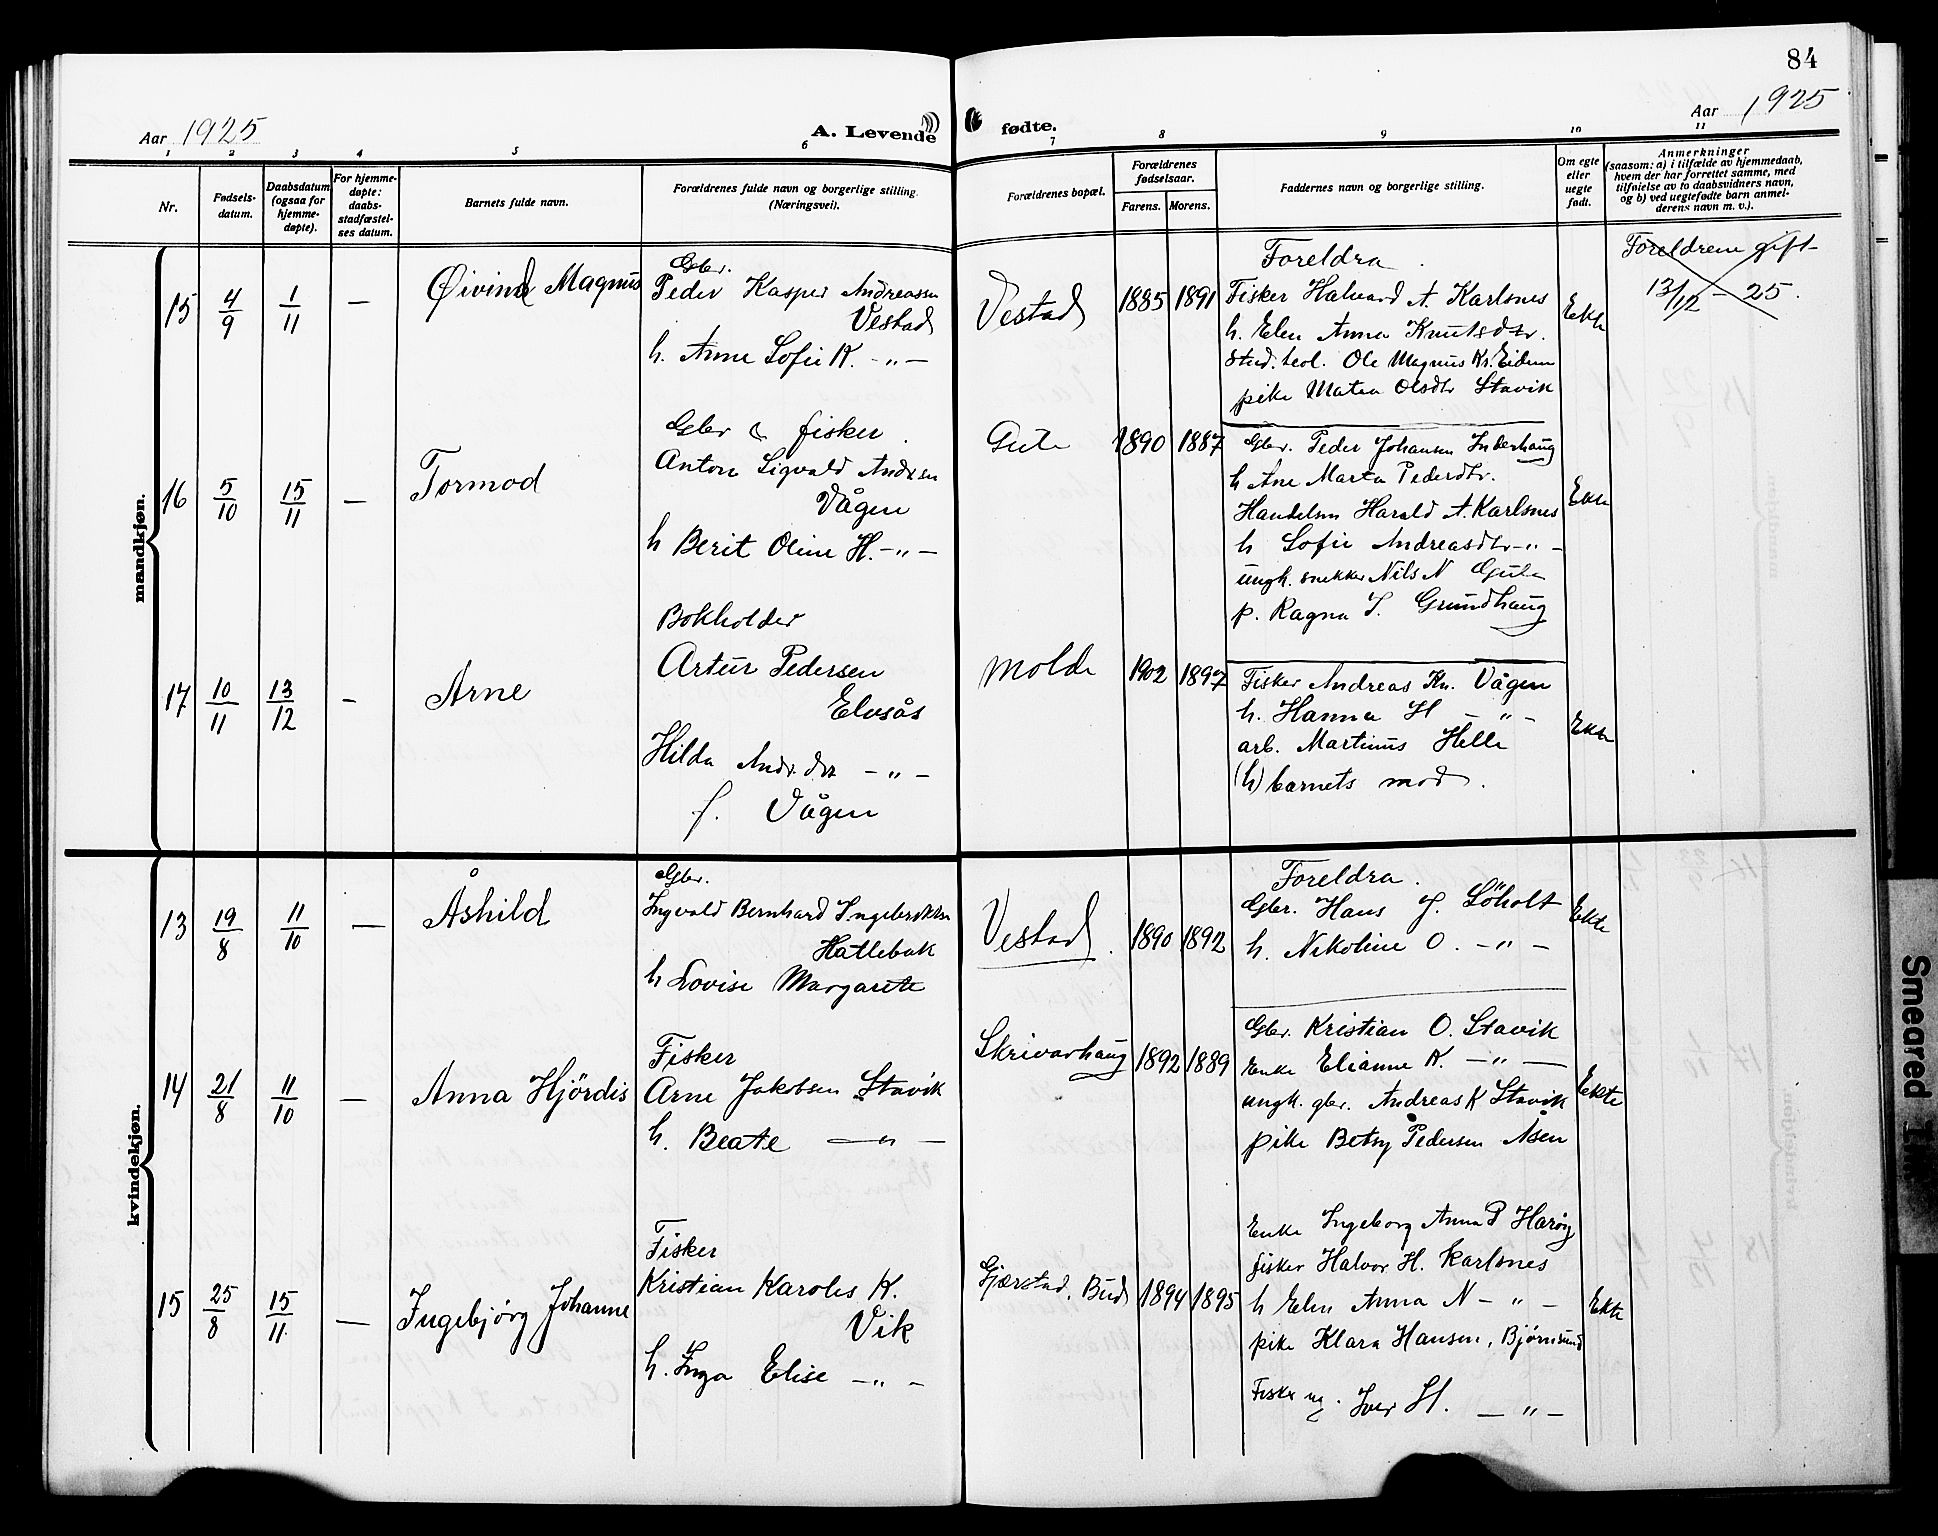 84
Aar 1925
A. Levende
fødte.
Aar 1925
1 2 3 4 5 6 7 8 9 10 11
Nr.
Fødsels-
datum.
Daabsdatum
(ogsaa for
hjemme-
døpte).
For hjemme-
døpte:
daabs-
stadfæstel-
ses datum.
Barnets fulde navn.
Forældrenes fulde navn og borgerlige stilling.
(Næringsvei).
Forældrenes bopæl.
Forældrenes
fødselsaar.
Farens. Morens.
Faddernes navn og borgerlige stilling.
Om egte
eller
uegte
født.
Anmerkninger
(saasom: a) i tilfælde av hjemmedaab,
hvem der har forrettet samme, med
tilføielse av to daabsvidners navn,
og b) ved uegtefødte barn anmel-
derens navn m. v.).
mandkjøn.
15 4/9 1/11 — Øivind Magnus
Gbr.
Peder Kasper Andreassen
Vestad
h. Anne Sofie K. -"-
Vestad 1885 1891
Foreldra.
Fisker Halvard A. Karlsnes
h. Elen Anna Knutsdtr.
stud. teol. Ole Magnus Kr. Eidem
pike Matea Olsdtr Stavik
Ekte
Foreldrene gift
13/12 - 25.
16 5/10 15/11 — Tormod
Gbr & fisker.
Anton Sigvald Andrsen
Vågen
h Berit Oline H. -"-
Gule 1890 1887
Gbr. Peder Johansen Inderhaug
h Ane Marta Pedersdtr.
Handelsm Harald A. Karlsnes
h Sofie Andreasdtr -"-
ungk. snekker Nils N Gule
p. Ragna I. Grundhaug
Ekte
17 10/11 13/12 - Arne
Bokholder
Artur Pedersen
Elvsås
Hilda Andr.dtr -"-
f. Vågen
Molde 1902 1897
Fisker Andreas Kn. Vågen
h. Hanna H -"-
arb. Martinus Helle
(h) barnets mod.
Ekte
kvindekjøn.
13 19/8 11/10 — Åshild
Gbr.
Ingvald Bernhard Ingebriktsen
Hatlebak
h Lovise Margarete
Vestad. 1890 1892
Foreldra.
Gbr. Hans J. Söholt
h. Nikoline O. -"-
Ekte
14 21/8 11/10 — Anna Hjördis
Fisker
Arne Jakobsen Stavik
h. Beate -"-
Skrivarhaug 1892 1889
Gbr. Kristian O. Stavik
Enke Elianne K. -"-
ungk. gbr. Andreas K Stavik
pike Betsy Pedersen Åsen
Ekte
15 25/8 15/11 — Ingebjörg Johanne
Fisker
Kristian Karoles K.
Vik
h. Inga Elise -"-
Gjærstad, Bud 1894 1895
Enke Ingeborg Anna P Harøy
fisker Halvor H. Karlsnes
h Elen Anna N -"-
pike Klara Hansen, Bjørnsund
Fisker ug. Iver H. -"-
Ekte
Smeared